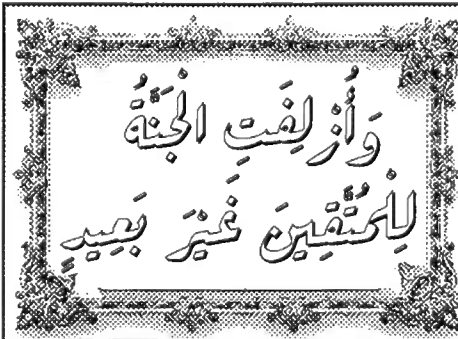 وَأُزْلِفَتِ الْجَنَّةُ
لِلْمُتَّقِينَ غَيْرَ بَعِيدٍ